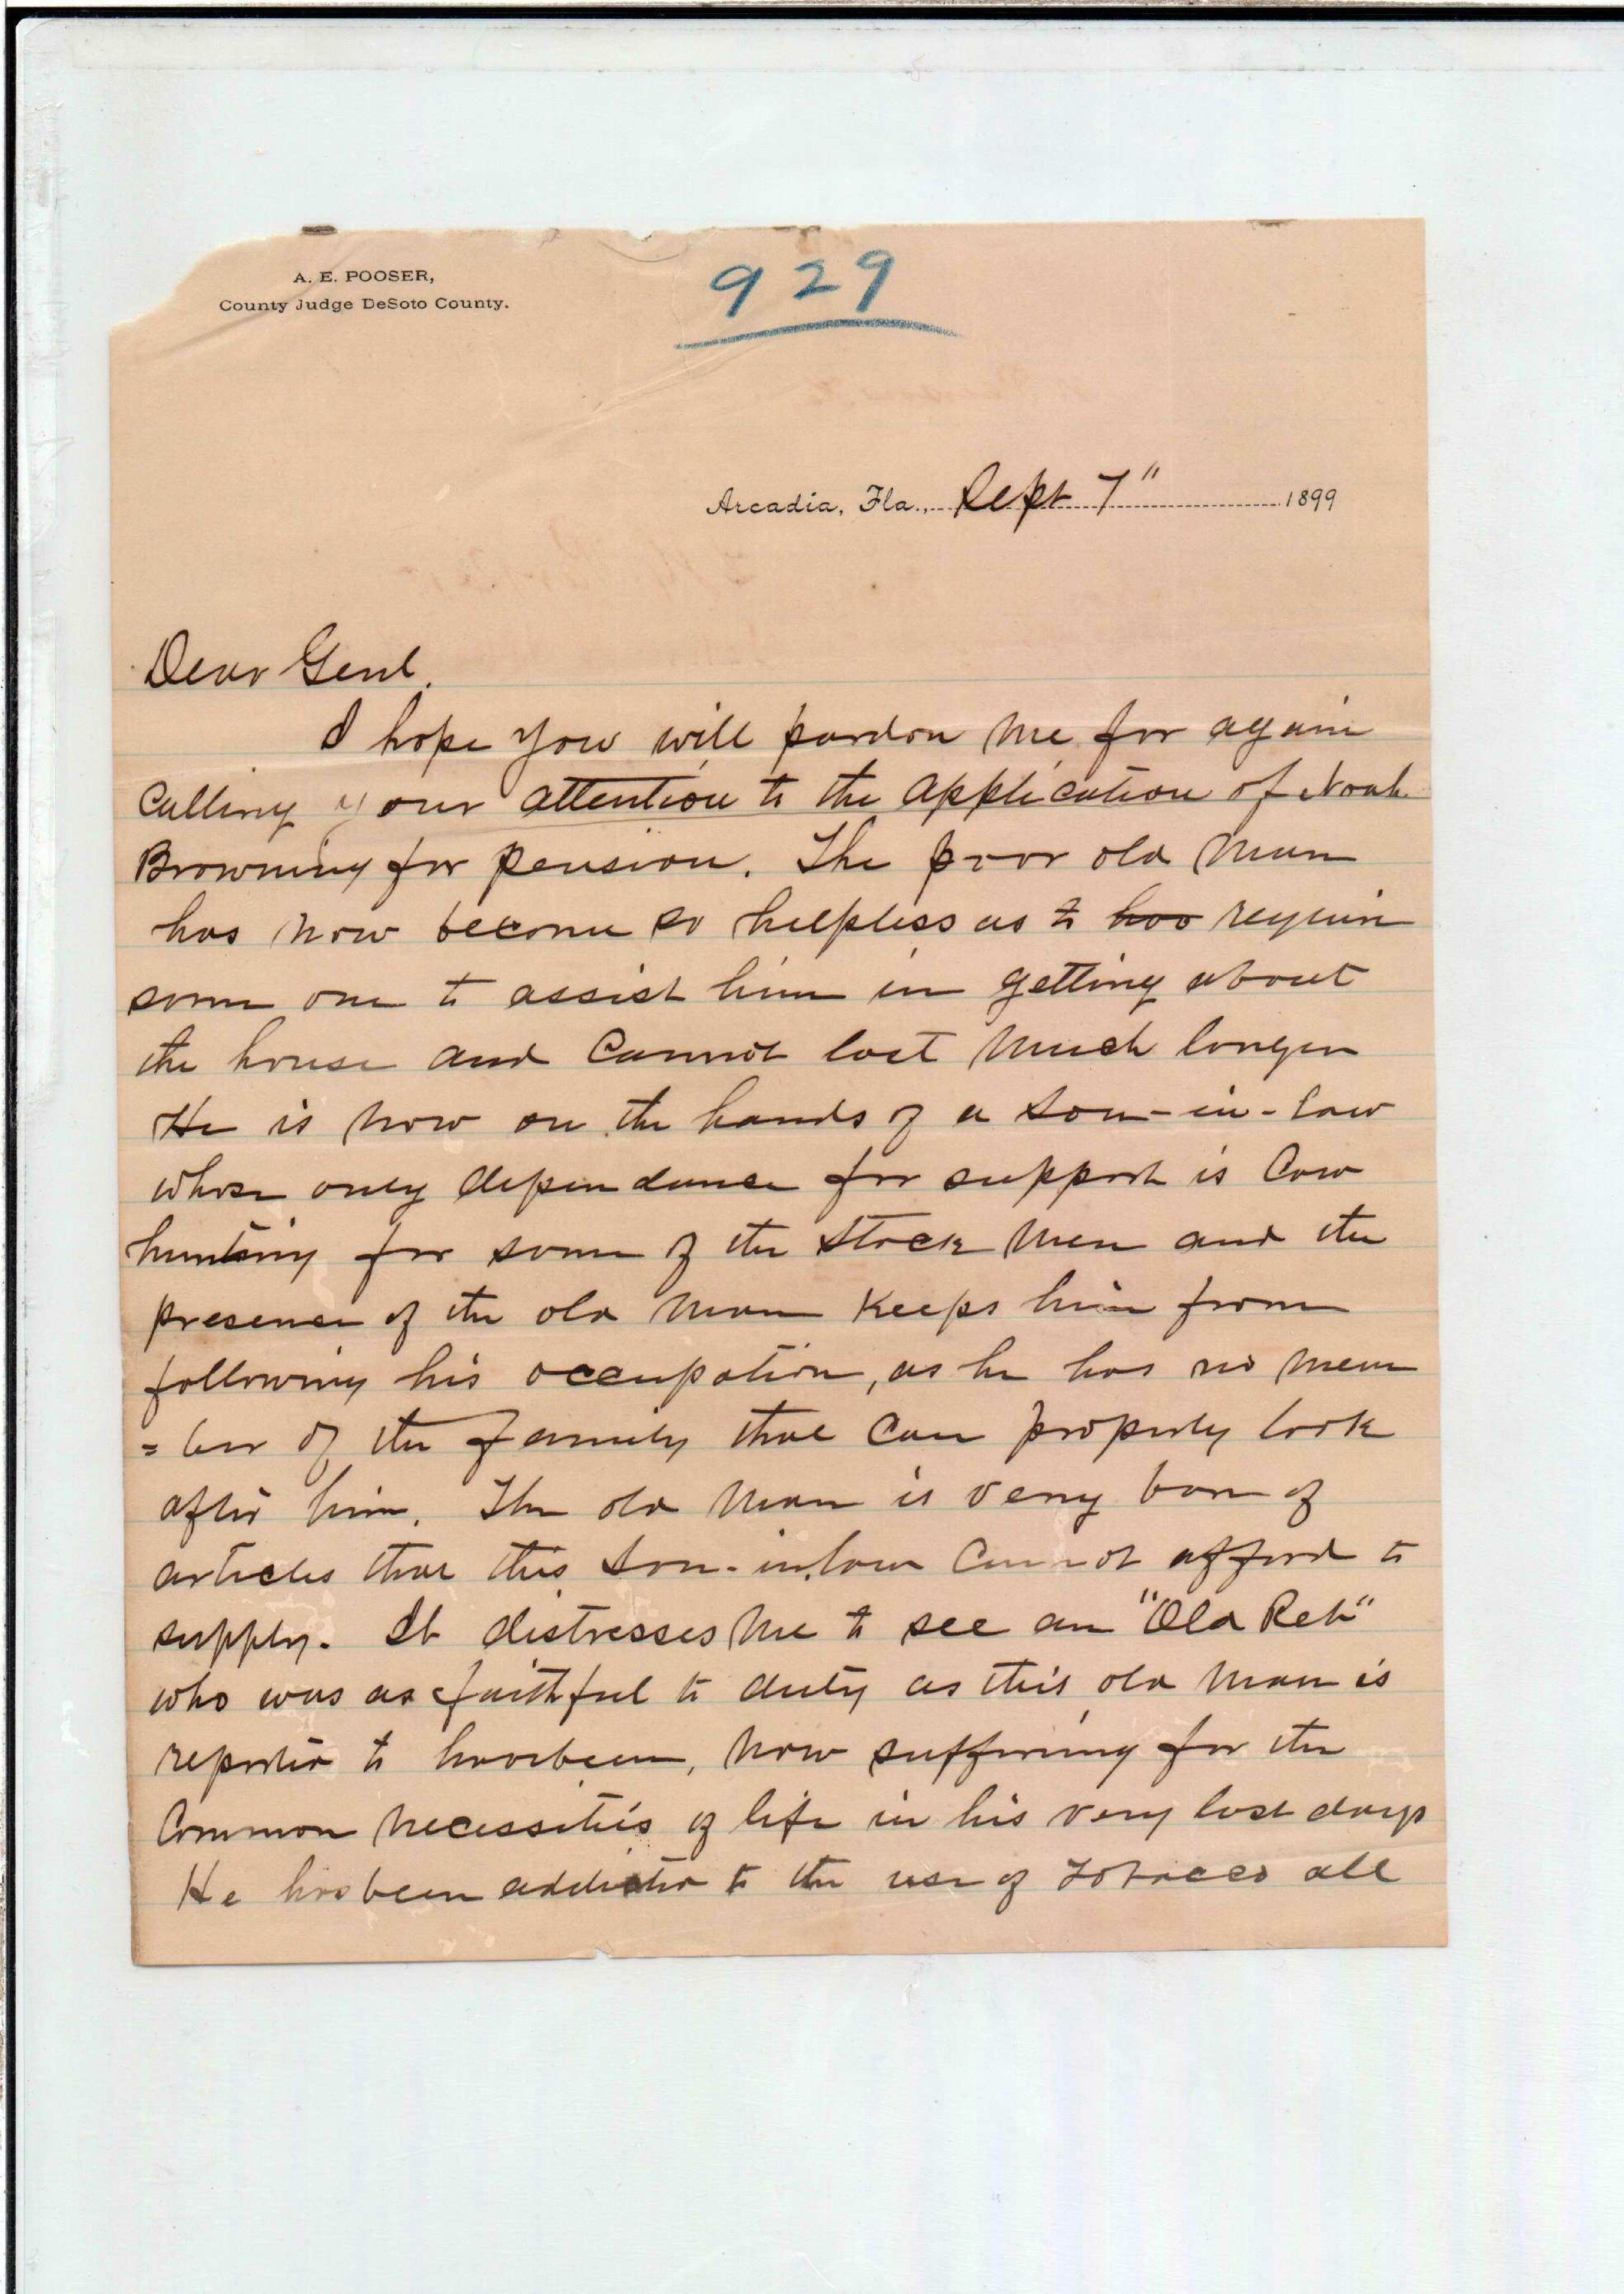 A. E. POOSER,
County Judge DeSoto County.
929
Arcadia, Fla., Sept 7" 1899
Dear Genl.
I hope you will pardon me for again
calling your attention to the application of Noah
Browning for pension. The poor old man
has now become so helpless as to hoo require
some one to assist him in getting about
the house and cannot last much longer
He is now on the hands of a son-in-law
whose only dependance for support is cow
hunting for some of the stock men and the
presence of the old man keeps him from
following his occupation, as he has no mem
=ber of the family that can properly look
after him. The old man is very bare of
articles that this son-in-law cannot afford to
supply. It distresses me to see an "Old Reb"
who was as faithful to duty as this old man is
reported to have been, now suffering for the
common necessities of life in his very last days
He has been addicted to the use of tobacco all